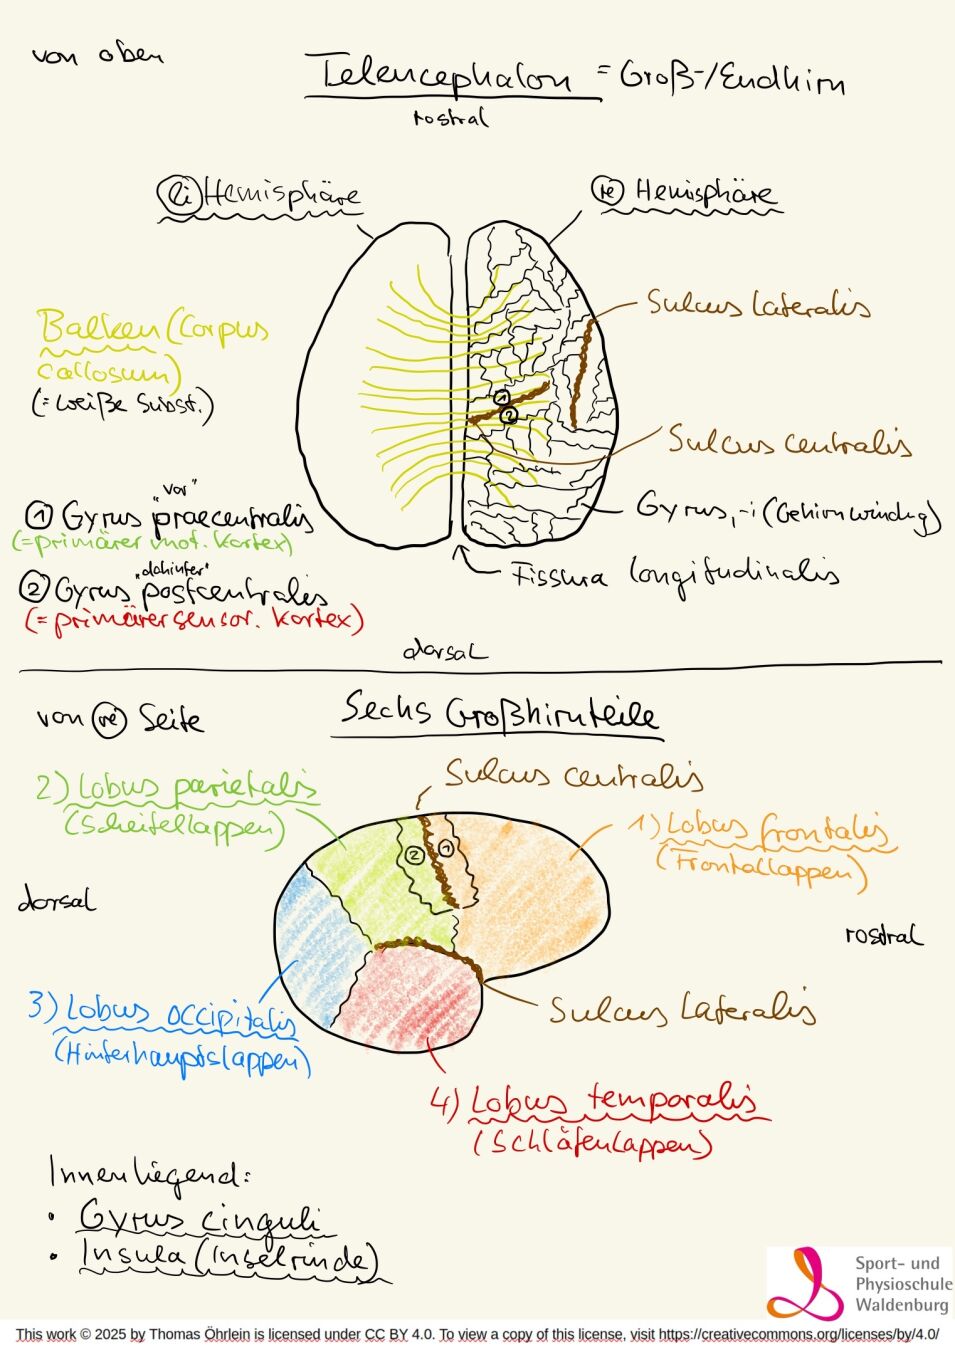 von oben
Telencephalon = Groß-/Endhirn
rostral
li Hemisphäre
re Hemisphäre
Sulcus lateralis
Balken (Corpus
callosum)
(= weiße Subst.)
Sulcus centralis
"vor"
1 Gyrus praecentralis
(= primärer mot. Kortex)
Gyrus, -i (Gehirnwindg)
"dahinter"
2 Gyrus postcentralis
(= primärer sensor. Kortex)
Fissura longitudinalis
1
2
dorsal
von re Seite
Sechs Großhirnteile
Sulcus centralis
2) Lobus parietalis
(Scheitellappen)
1) Lobus frontalis
(Frontallappen)
2
1
dorsal
rostral
3) Lobus occipitalis
(Hinterhauptslappen)
Sulcus lateralis
4) Lobus temporalis
(Schläfenlappen)
Innenliegend:
• Gyrus cinguli
• Insula (Inselrinde)
Sport- und
Physioschule
Waldenburg
This work © 2025 by Thomas Öhrlein is licensed under CC BY 4.0. To view a copy of this license, visit https://creativecommons.org/licenses/by/4.0/